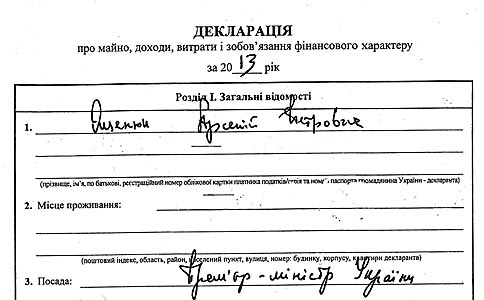 ДЕКЛАРАЦІЯ
про майно, доходи, витрати і зобов'язання фінансового характеру
за 2013 рік
Розділ I. Загальні відомості
1. Яценюк Арсеній Петрович
(прізвище, ім'я, по батькові, реєстраційний номер облікової картки платника податків/серія та номер паспорта громадянина України - декларанта)
2. Місце проживання:
(поштовий індекс, область, район, населений пункт, вулиця, номер: будинку, корпусу, квартири декларанта)
3. Посада: Прем'єр-міністр України